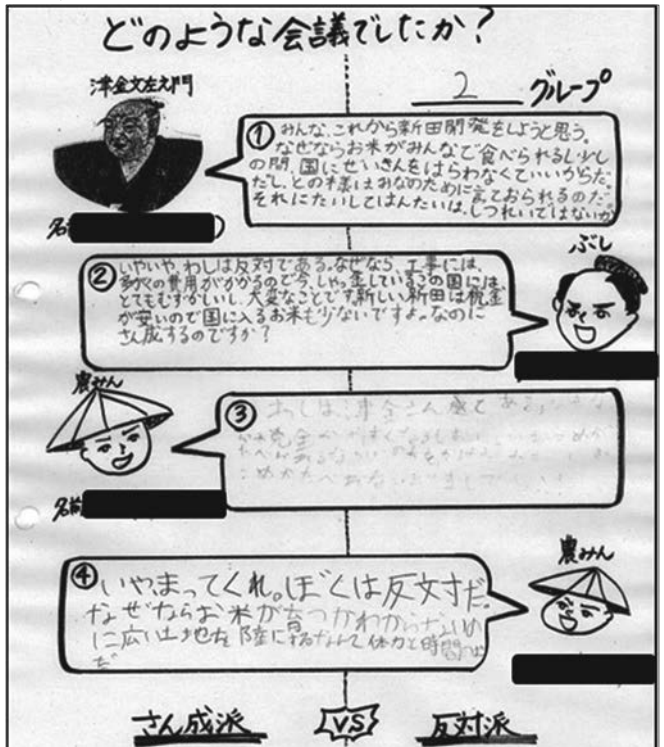 どのような会議でしたか?
津金文左エ門
2 グループ
① みんな、これから新田開発をしようと思う。
なぜならお米がみんなで食べられるし少し
の間、国にぜいきんをはらわなくていいからだ。
だし、との様はみなのために言ておられるのだ。
それにたいしてはんたいは、しつれいではないか
名
ぶし
② いやいや、わしは反対である。なぜなら、工事には、
多くの費用がかかるので今、しゃっ金しているこの国には、
とてもむずかしいし、大変なことです。新しい新田は税金
が安いので国に入るお米も少ないですよ。なのに
さん成するのですか?
農みん
③
わしは、津金さん
名前
農みん
④ いや、まってくれ。ぼくは反対だ。
なぜならお米が育つかわからないの
に広い土地を陸にするなんて体力と時間
だ
さん成派 VS 反対派